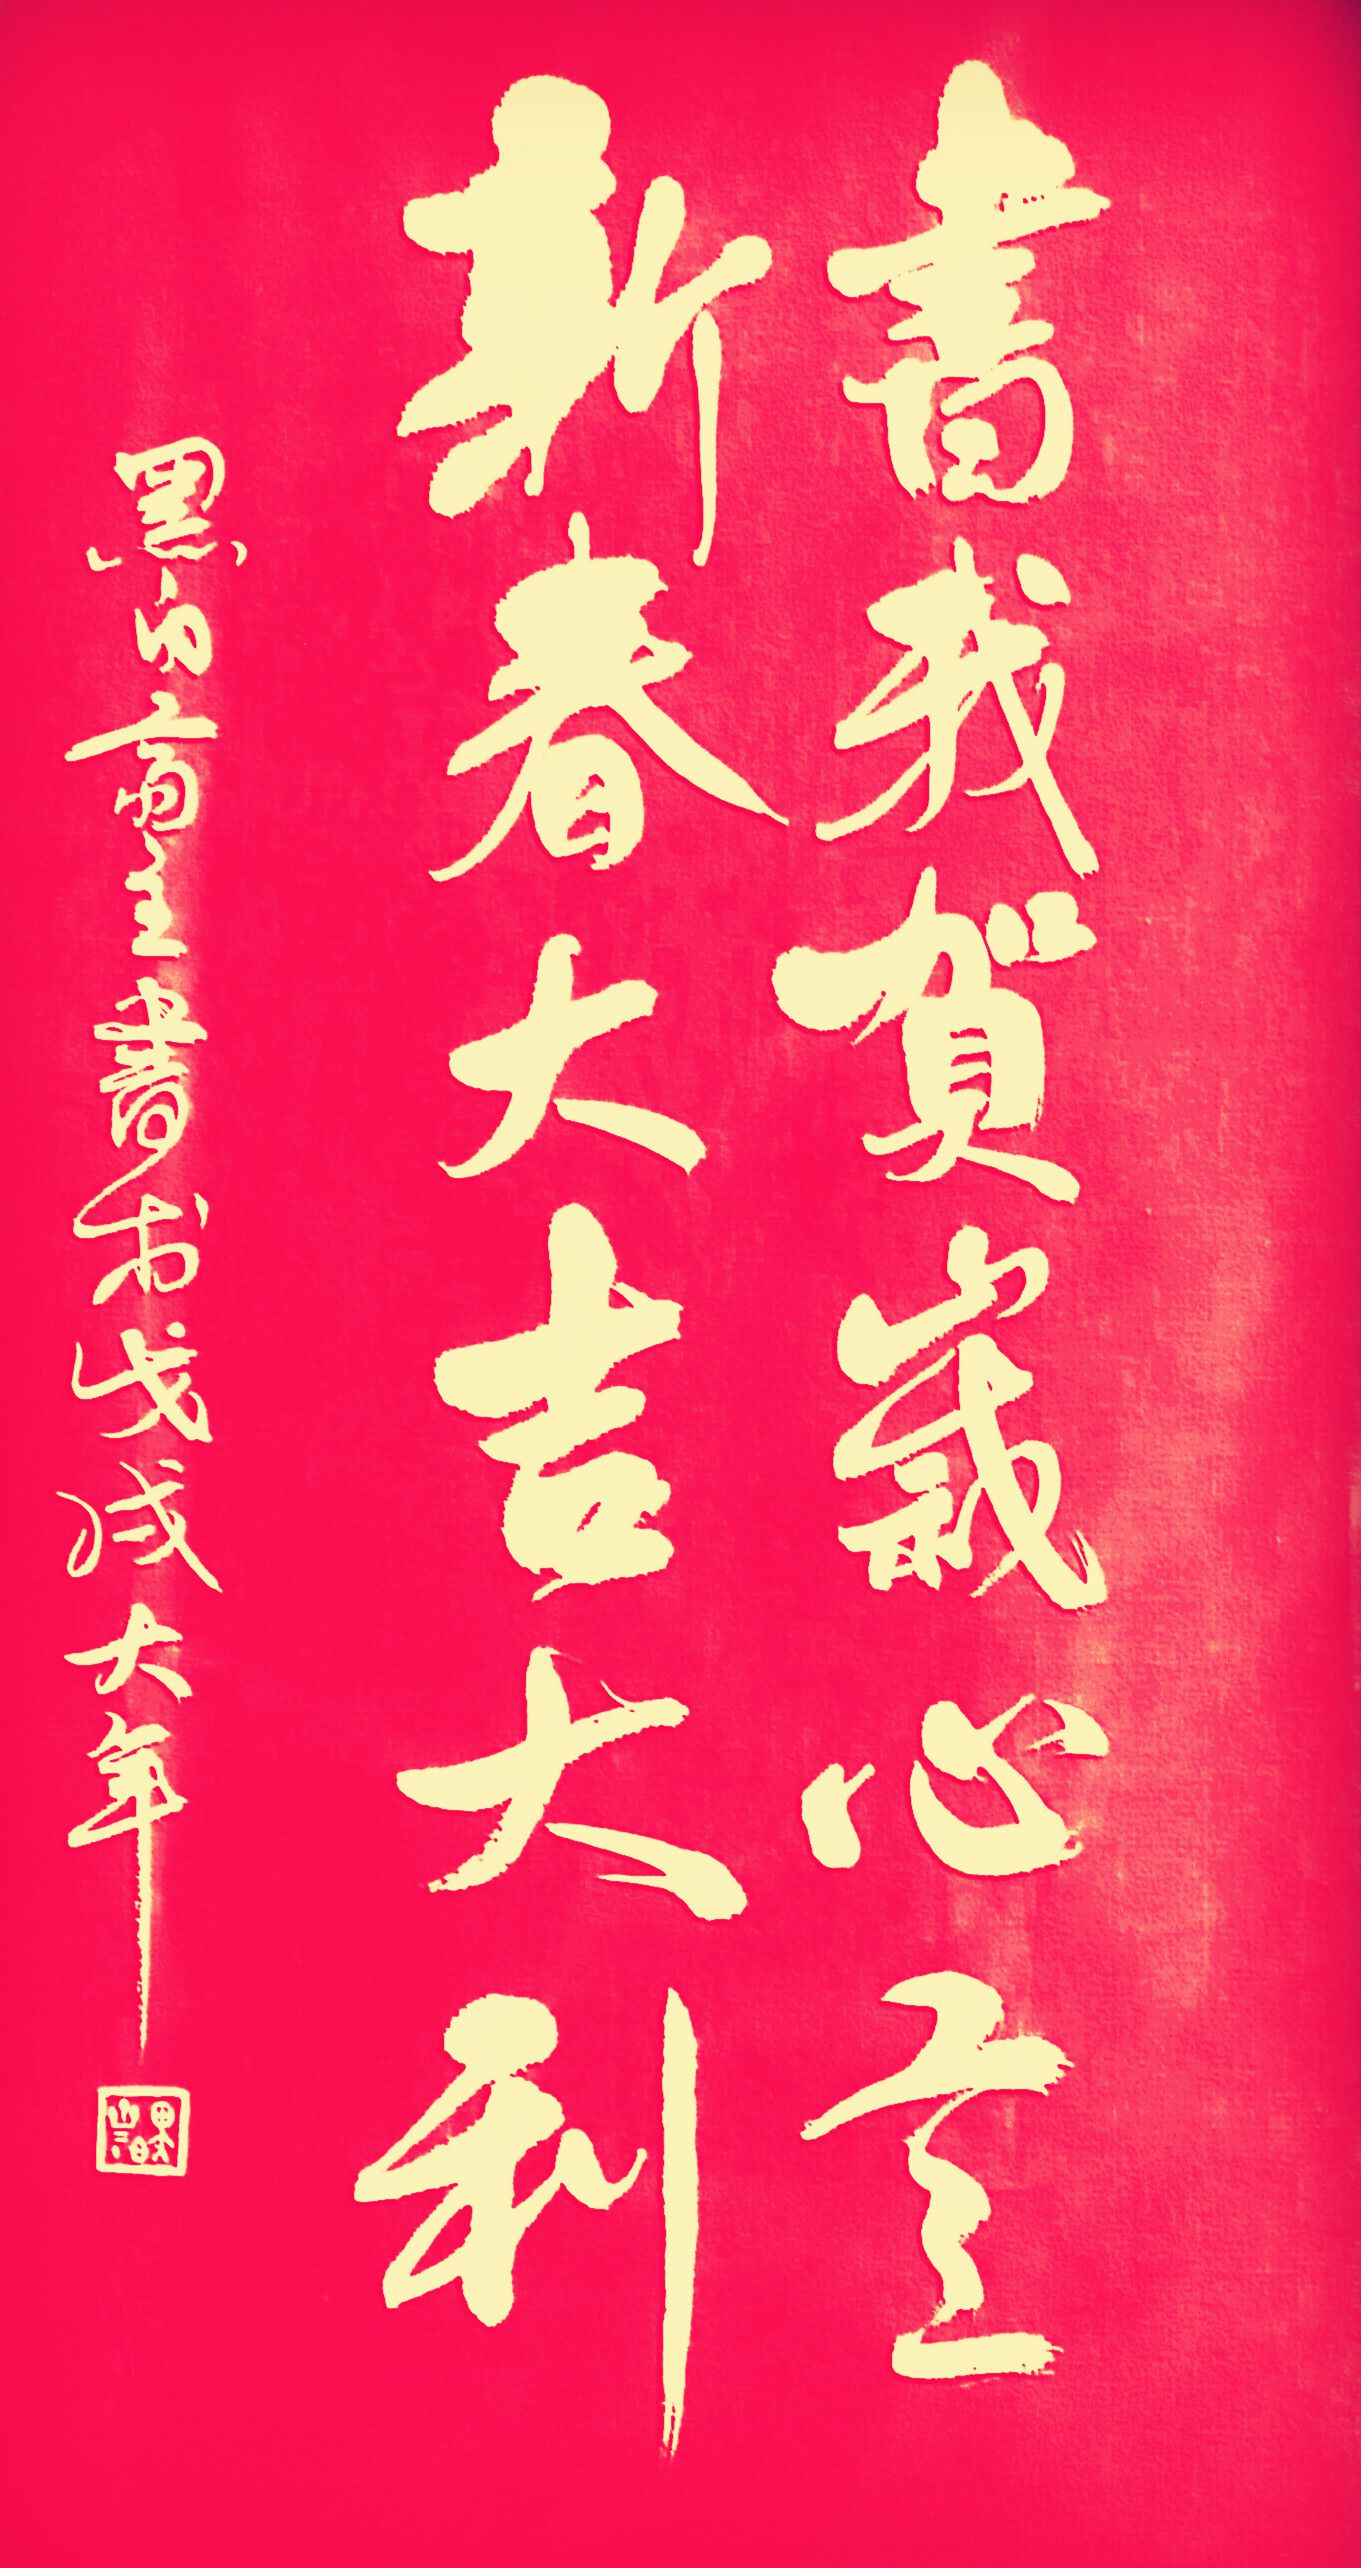 書我賀歲心意
新春大吉大利
黑白斋主書於戊戌大年